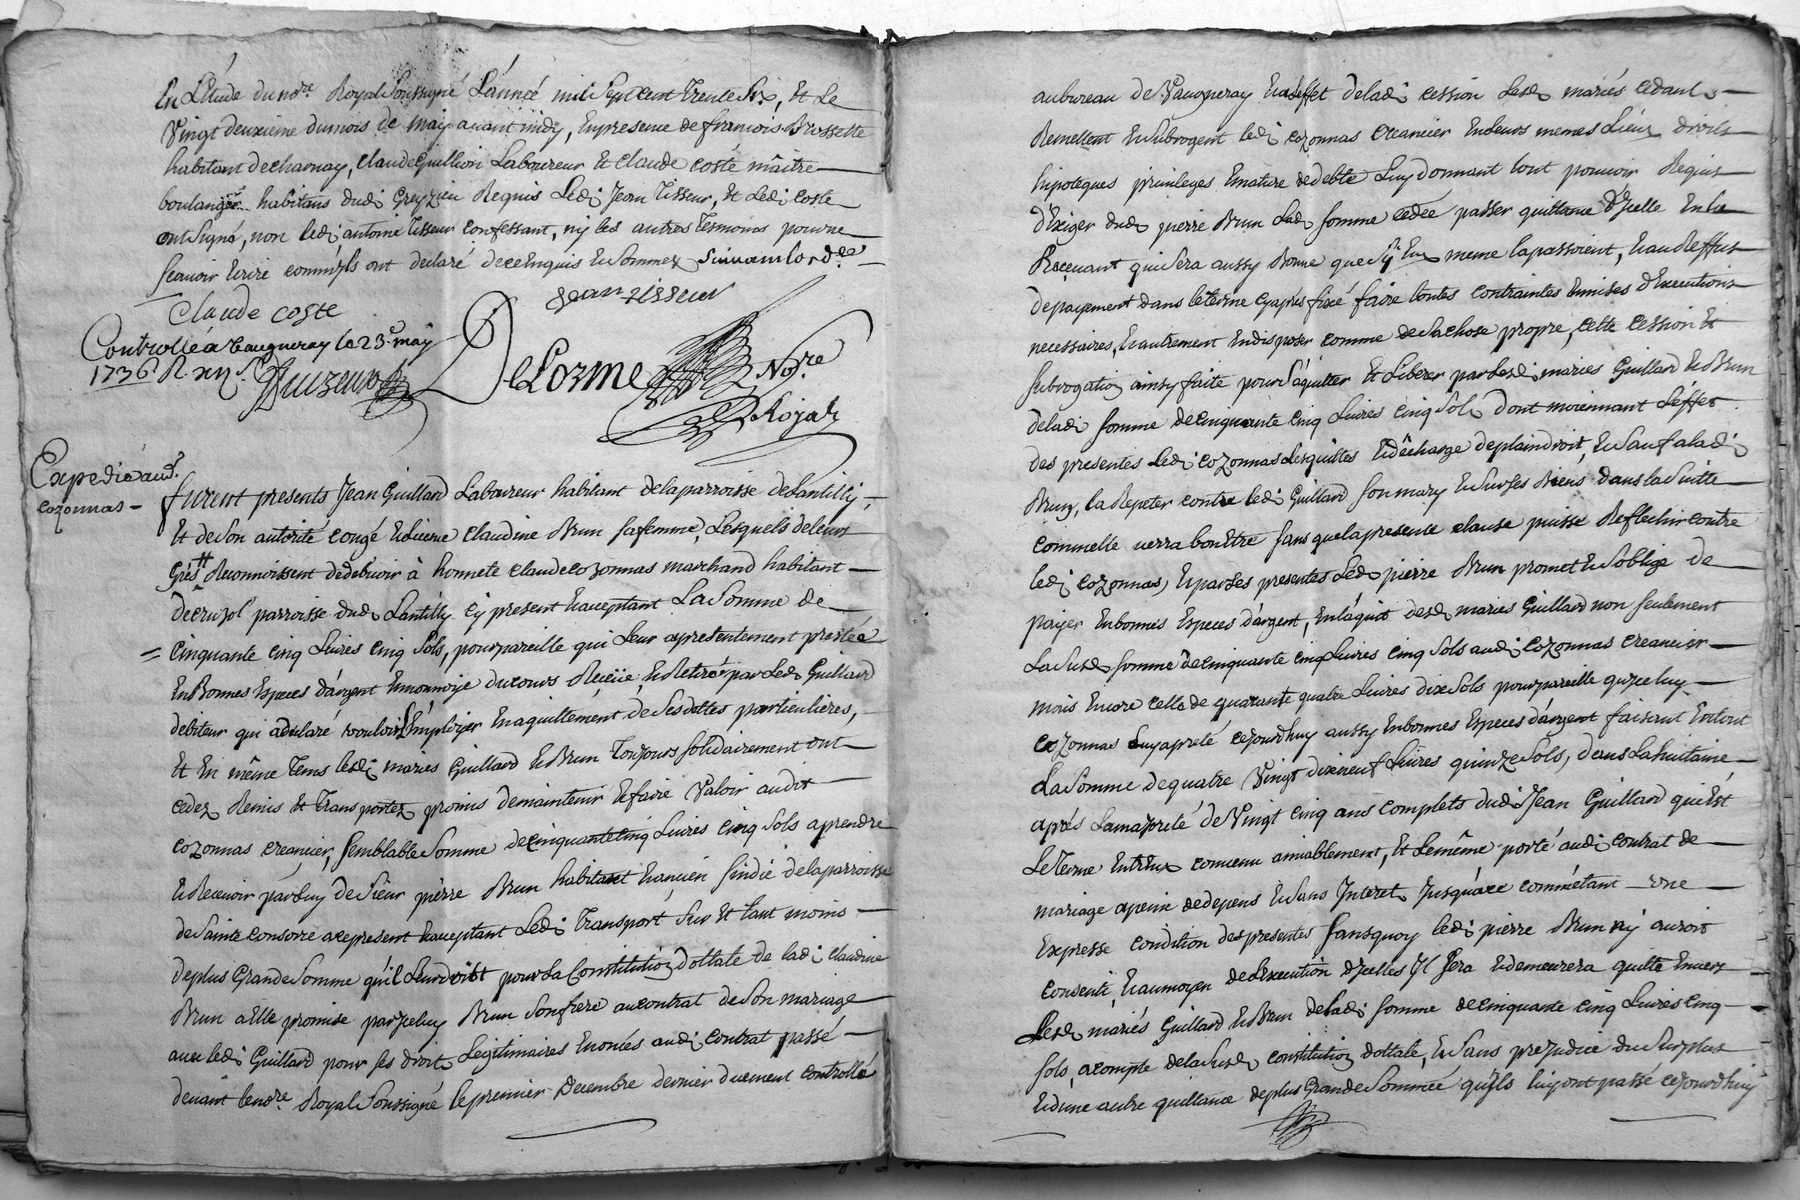 En L'Etude du no.re Royal Soussigné L'année mil Sept cent trente Six, et Le
Vingt deuxieme du mois de may avant midy, En presence de francois Brossette
habitant de charnay, claude Guillion Laboureur et claude coste mâitre
boulanger habitans dud. Greyzieu Requis Led. Jean Tisseur, et Led. coste
ont Signé, non led. antoine Tisseur confessant, ny les autres Tesmoins pour ne
scavoir Ecrire comm'ils ont declaré de ce Enquis et Sommez Suivant lord.ce
Claude coste
Jean tisseur
Controllé à Vaugneray le 23. may
1736 R xii s.
DeLorme No.re
Royal
Expedié aud.
cozonnas
furent presents Jean Guillard Laboureur habitant de la parroisse de Lantilly,
Et de Son autorité congé et licence claudine Brun sa femme, Lesquels de leurs
Grés Reconnoissent de debvoir à honnete claude cozonnas marchand habitant
de cruzol parroisse dud. Lantilly cy present et aceptant La Somme de
cinquante cinq Livres cinq Sols, pour pareille qui Leur a presentement prestée
En Bonnes Especes d'argent Et monnoye du cours Reçüe et Retiré par Led. Guillard
debiteur qui a déclaré vouloir l'Employer En aquittement de Ses dettes particulieres,
Et En même Tems lesd. maries Guillard et Brun Toujours solidairement ont
cedez Remis et Transportez promis de maintenir et faire Valoir audit
cozonnas creancier, Semblable Somme de cinquante cinq Livres cinq Sols a prendre
et Recevoir par luy de Sieur pierre Brun habitant et ancien Sindic de la parroisse
de Sainte consorce a ce present et aceptant Led. Transport Sur et tant moins
de plus Grande Somme qu'il Leur doibt pour La Constitution dottale de lad. claudine
Brun a Elle promise par Iceluy Brun Son frere au contrat de Son mariage
avec led. Guillard pour ses droits Legitimaires Enoncés aud. contrat passé
devant le no.re Royal Soussigné le premier Decembre dernier duement controllé
au bureau de Vaugneray Et a l'effet de lad. cession Lesd. mariés cedants
Remettent Et Subrogent led. cozonnas creancier En leurs memes Lieux droits
hipoteques privileges Et nature de debte Luy donnant tout pouvoir Requis
d'Exiger dud. pierre Brun Lad. Somme cedée passer quittance d'Icelle En la
Recevant qui Sera aussy Bonne que Sy Eux meme la passoient, Et au Reffus
de payement dans le terme cy aprés fixé faire toutes contraintes Et mises d'Executions
necessaires, Et autrement En disposer comme de Sa chose propre, cette cession Et
Subrogation ainsy faite pour S'aquitter Et Liberer par Lesd. maries Guillard et Brun
de lad. Somme de cinquante cinq Livres cinq Sols dont moiennant L'effet
des presentes Led. cozonnas Les quittes Et décharge de plain droit, Et Sauf a lad.
Brun, la Repeter contre led. Guillard Son mary Et Sur Ses Biens dans la Suitte
comm'elle verra bon Etre Sans que la presente clause puisse Reflechir contre
led. cozonnas, Et par Ses presentes Led. pierre Brun promet Et S'oblige de
payer En bonnes Especes d'argent, En l'aquit desd. maries Guillard non Seulement
La Susd. Somme de cinquante cinq Livres cinq Sols aud. cozonnas creancier
mais Encore celle de quarante quatre Livres dix Sols pour pareille qu'Iceluy
cozonnas Luy a preté cejourdhuy aussy En bonnes Especes d'argent faisant En tout
La Somme de quatre Vingt dixneuf Livres quinze Sols, dans La huitaine
aprés La majorité de Vingt cinq ans complets dud. Jean Guillard qui Est
Le Terme Entr'Eux convenu amiablement, Et Le même porté aud. contrat de
mariage a peine de depens Et Sans Interet Jusqu'a ce comm'étant une
Expresse condition des presentes Sans quoy led. pierre Brun n'y auroit
consenti, Et au moyen de L'execution d'Icelles Il Sera Et demeurera quitte Envers
Lesd. mariés Guillard Et Brun de lad. Somme de cinquante cinq Livres cinq
Sols, a compte de la Susd. constitution dottale, Et Sans prejudice du Surplus
Et d'une autre quittance de plus Grande Sommée qu'ils luy ont passé cejourdhuy